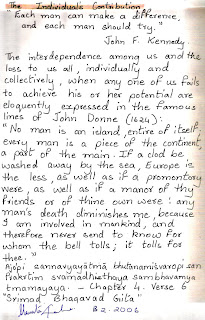 The Individual's Contribution
"Each man can make a difference,
and each man should try."
John F. Kennedy.
The interdependence among us and the
loss to us all, individually and
collectively, when any one of us fail
to achieve his or her potential are
eloquently expressed in the famous
lines of John Donne (1624):
"No man is an island, entire of itself;
every man is a piece of the continent,
a part of the main. If a clod be
washed away by the sea, Europe is
the less, as well as if a promontory
were, as well as if a manor of thy
friends or of thine own were: any
man's death diminishes me, because
I am involved in mankind, and
therefore never send to know for
whom the bell tolls; it tolls for
thee."
Ajopi sannavyayātmā bhutanamisvaropi san
Prakrtim svāmadhisthaya sambhavamya
tmamayaya. - Chapter 4. Verse 6
"Srimad Bhagavad Gita"
2-2006